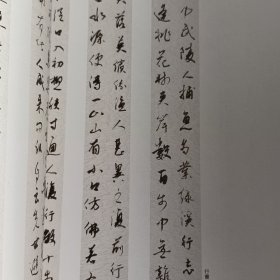 中武陵人捕魚為業緣溪行忘
逢桃花林夾岸數百步中無雜
美落英繽紛漁人甚異之復前行
水源便得一山山有小口仿佛若
從口入初極狹才通人復行數十步
人咸來問訊自云先世避